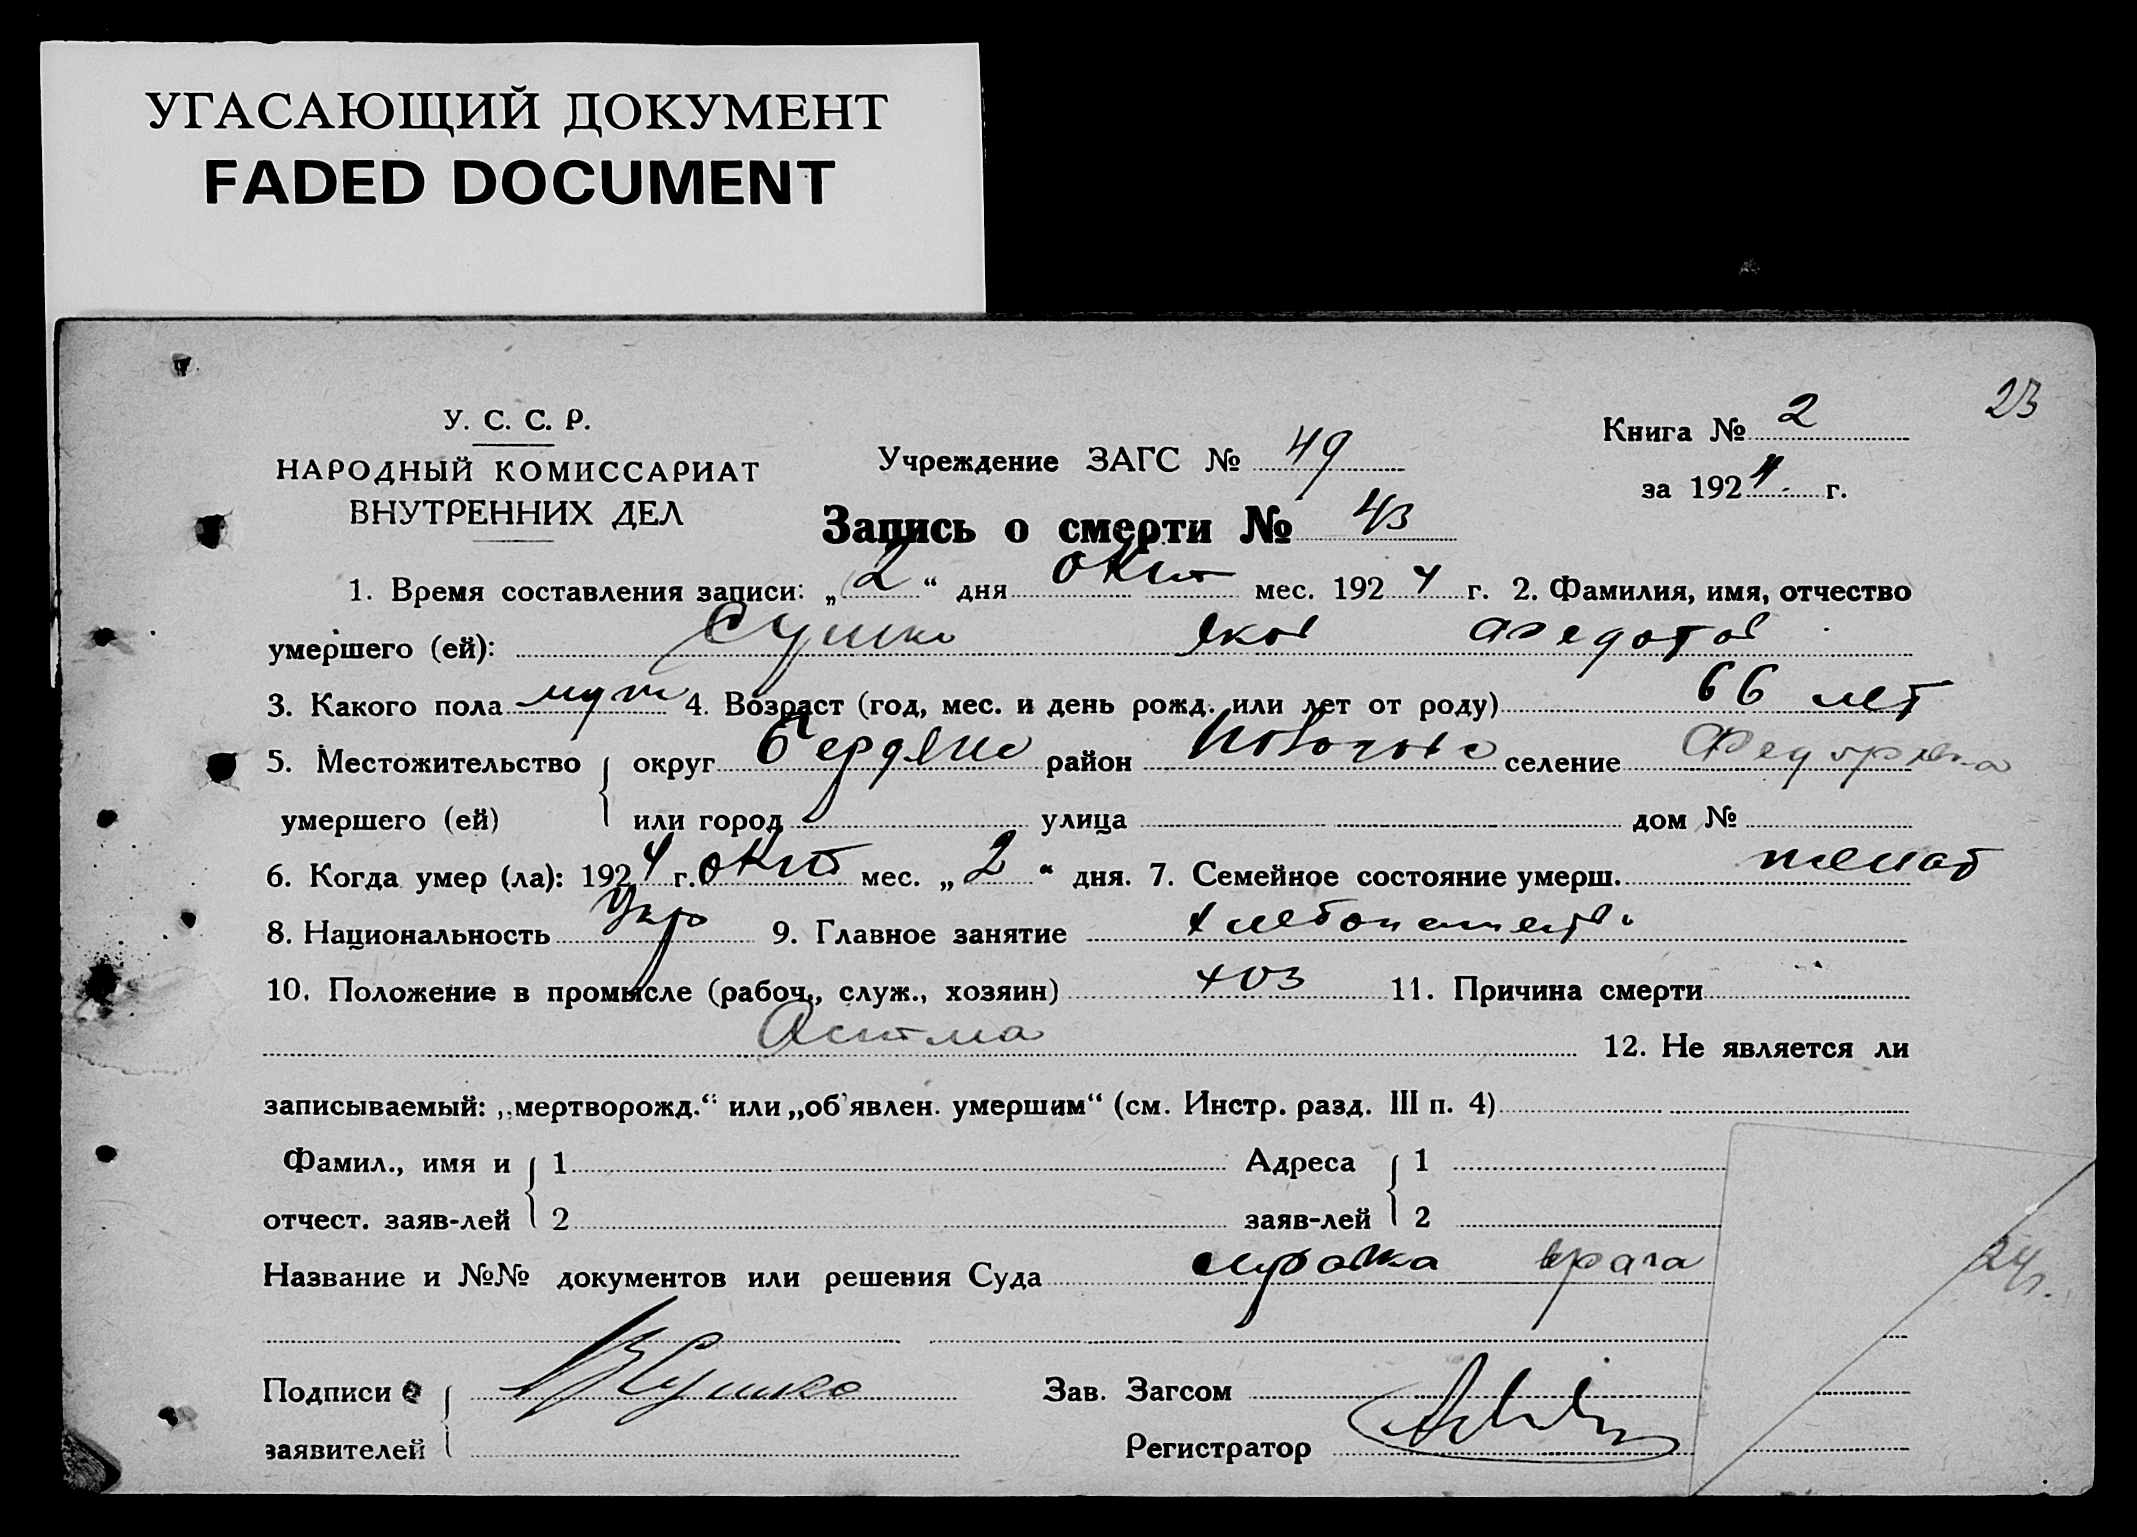 УГАСАЮЩИЙ ДОКУМЕНТ
FADED DOCUMENT
23
У. С. С. Р.
НАРОДНЫЙ КОМИССАРИАТ
ВНУТРЕННИХ ДЕЛ
Учреждение ЗАГС № 49
Книга № 2
за 1924 г.
Запись о смерти № 43
1. Время составления записи: „2“ дня окт мес. 1924 г. 2. Фамилия, имя, отчество
умершего (ей): Сушко Яков Федотов
3. Какого пола муж 4. Возраст (год, мес. и день рожд. или лет от роду) 66 лет
5. Местожительство округ Бердянс район селение Федоровка
умершего (ей) или город улица дом №
6. Когда умер (ла): 1924 г. окт мес. „2“ дня. 7. Семейное состояние умерш. женат
8. Национальность Укр 9. Главное занятие хлебопашество
10. Положение в промысле (рабоч., служ., хозяин) хоз 11. Причина смерти
Астма 12. Не является ли
записываемый: „мертворожд.“ или „об'явлен. умершим“ (см. Инстр. разд. III п. 4)
Фамил., имя и 1 Адреса 1
отчест. заяв-лей 2 заяв-лей 2
Название и №№ документов или решения Суда справка врача
24
Подписи Сушко Зав. Загсом
заявителей Регистратор